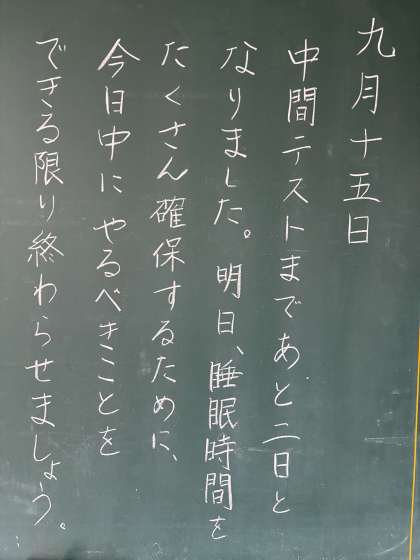 九月十五日
中間テストまであと二日と
なりました。明日、睡眠時間を
たくさん確保するために、
今日中にやるべきことを
できる限り終わらせましょう。